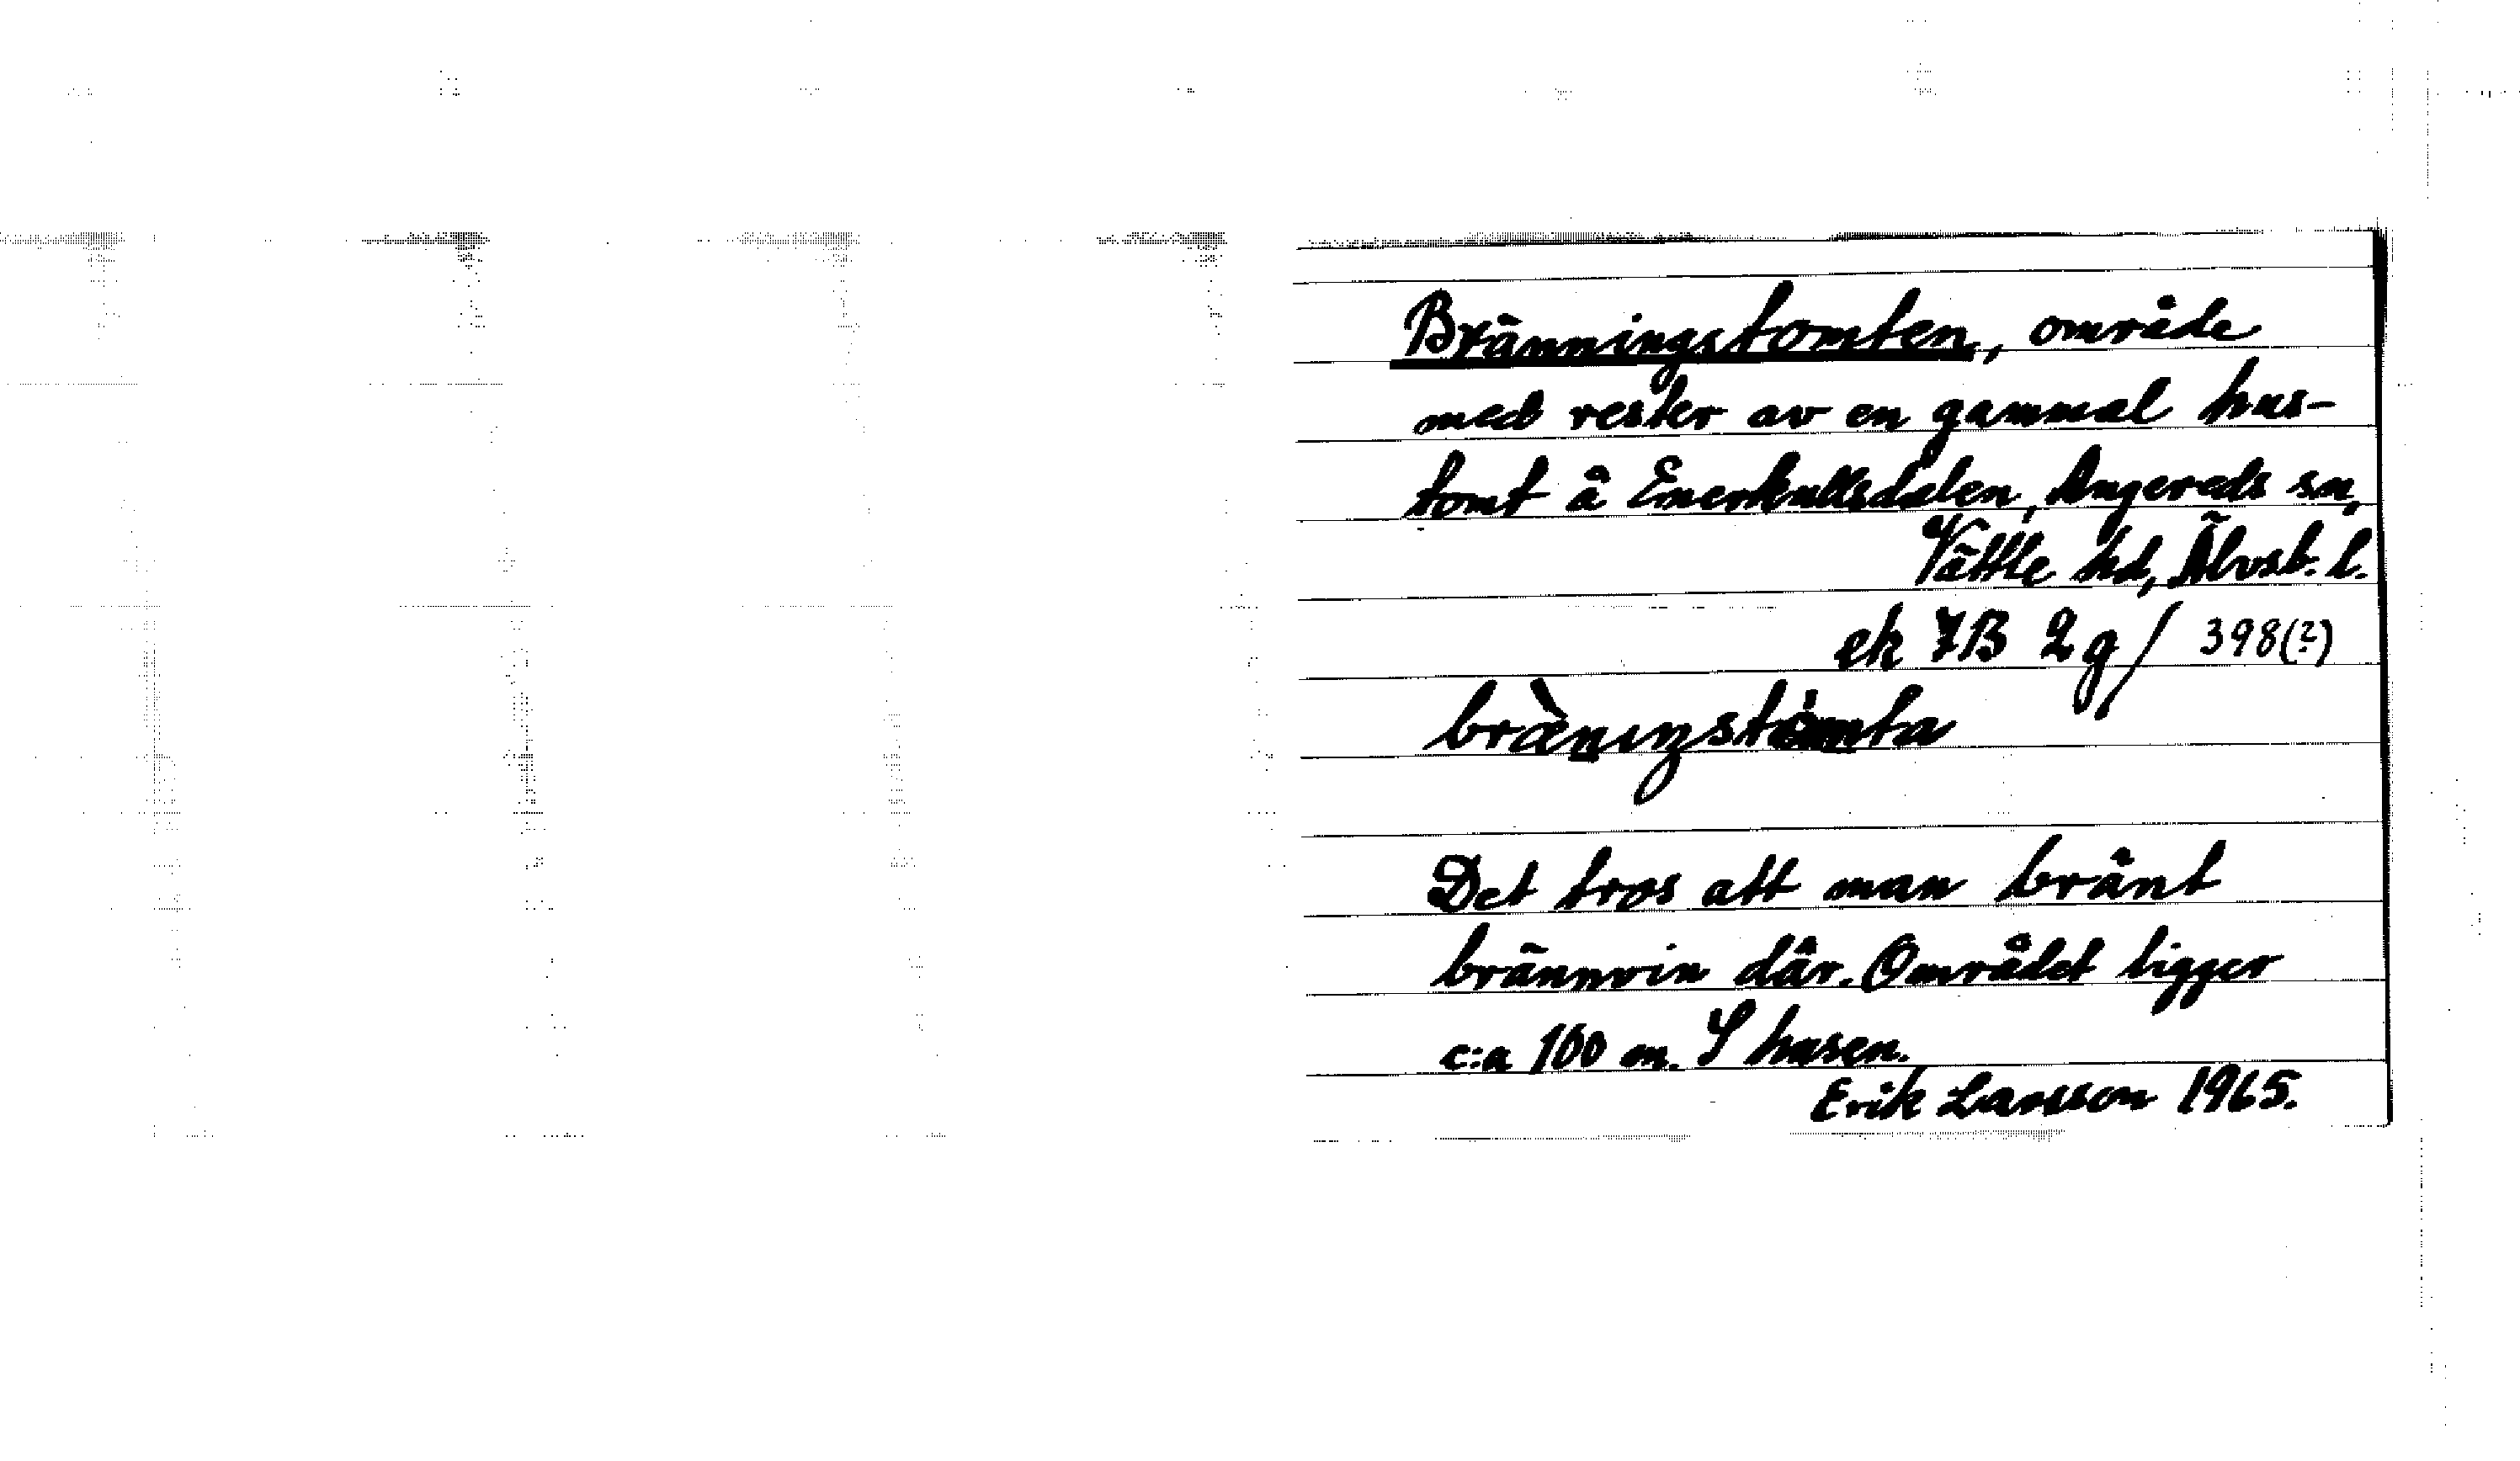 Bränningstomten, område
med rester av en gammal hus-
tomt å Enerkullsdalen, Angereds sn,
Vättle hd, Älvsb. l.
ek 7B 2g / 398(?)
Det tros att man bränt
brännvin där. Området ligger
c:a 100 m. S husen.
Erik Larsson 1965.